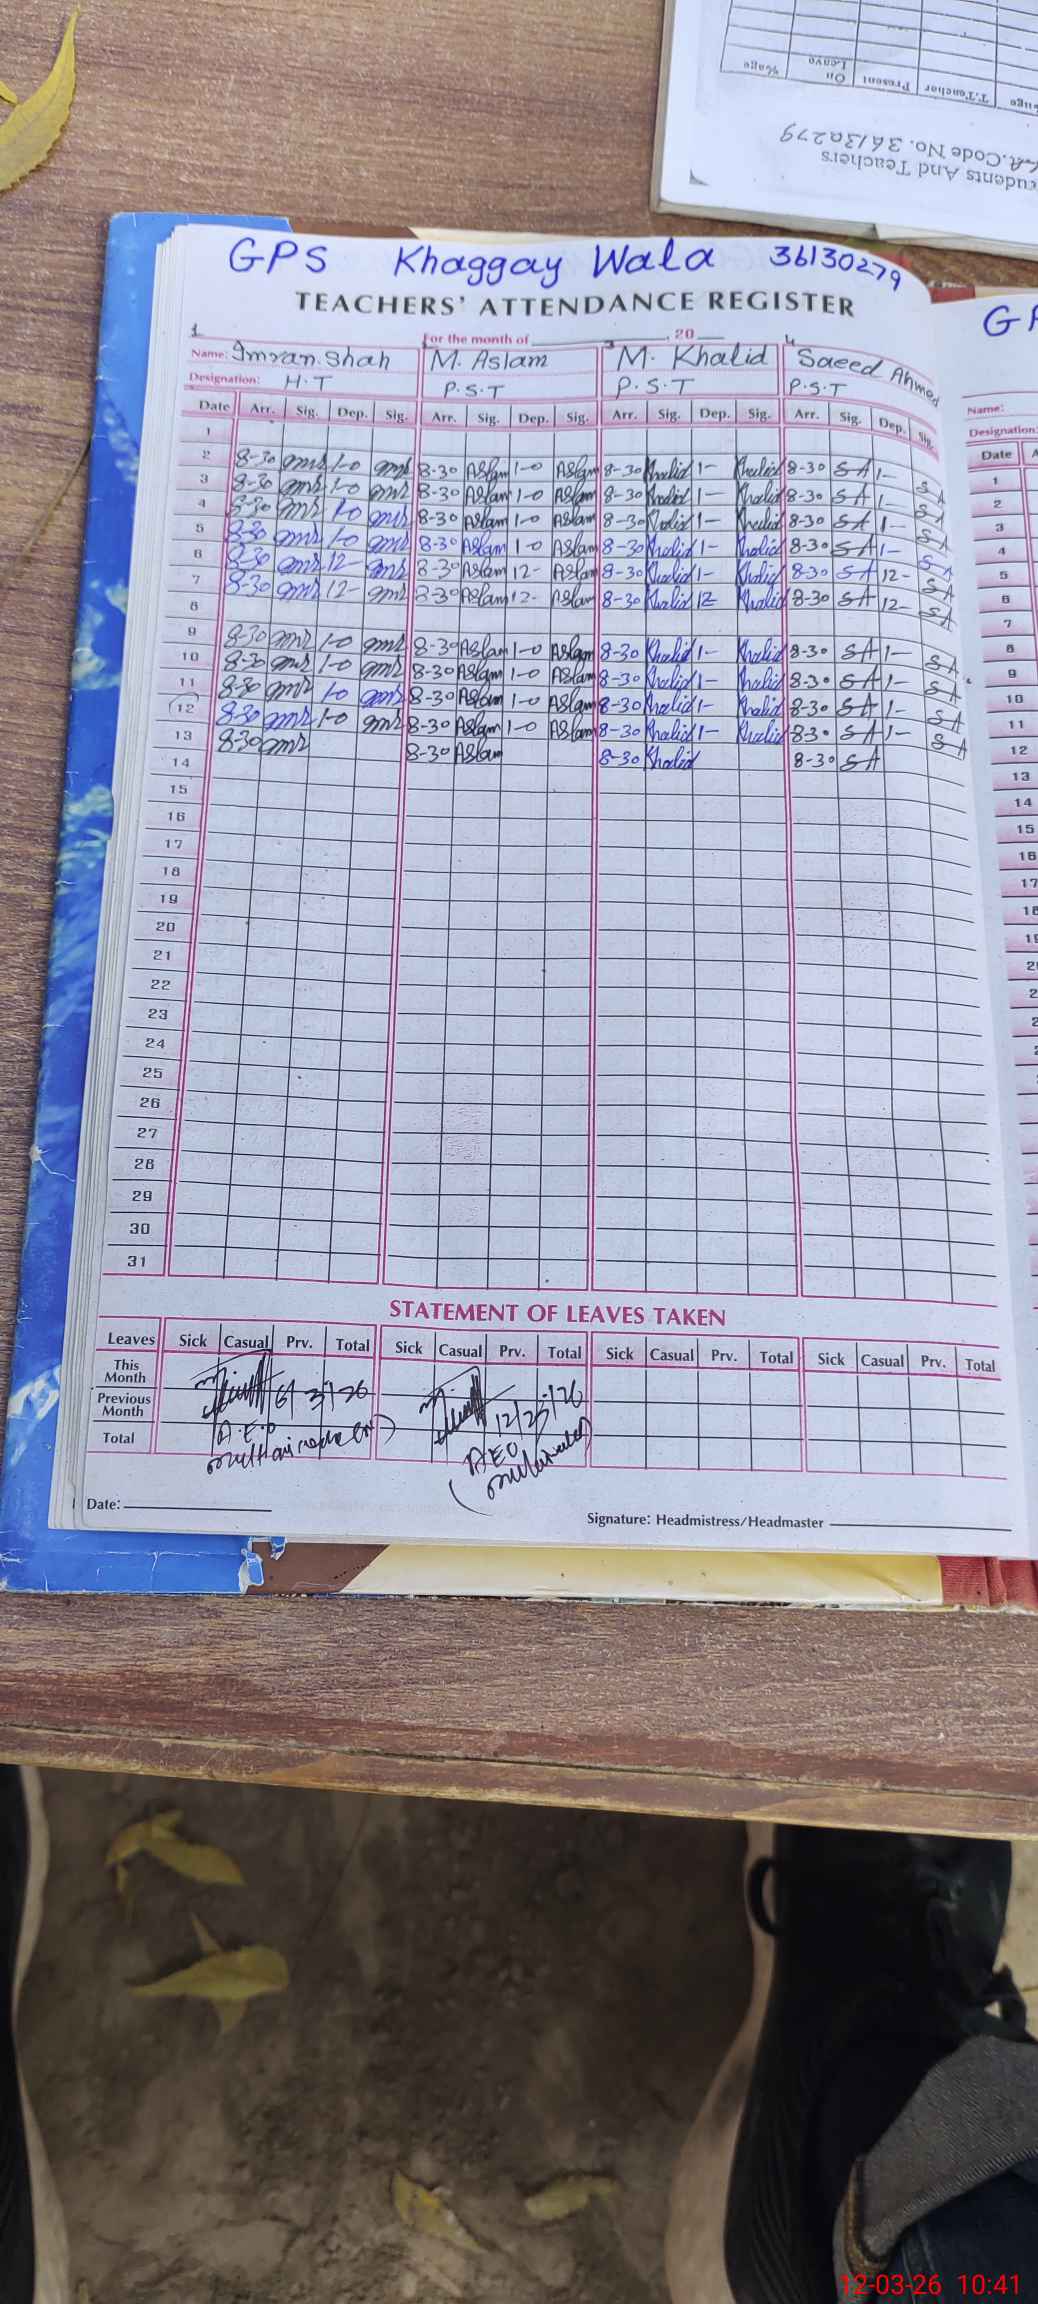 %age
On Leave
Present
T.Teacher
Code No. 36130279
Students And Teachers
GPS Khaggay Wala 36130279
TEACHERS' ATTENDANCE REGISTER
For the month of 20
1 4
Name: Imran Shah M. Aslam M. Khalid Saeed Ahmed
Designation: H.T P.S.T P.S.T P.S.T
Date Arr. Sig. Dep. Sig. Arr. Sig. Dep. Sig. Arr. Sig. Dep. Sig. Arr. Sig. Dep. Sig.
1
2 8-30 1-0 8-30 Aslam 1-0 Aslam 8-30 Khalid 1- Khalid 8-30 SA 1- SA
3 8-30 1-0 8-30 Aslam 1-0 Aslam 8-30 Khalid 1- Khalid 8-30 SA 1- SA
4 8-30 1-0 8-30 Aslam 1-0 Aslam 8-30 Khalid 1- Khalid 8-30 SA 1- SA
5 8-30 1-0 8-30 Aslam 1-0 Aslam 8-30 Khalid 1- Khalid 8-30 SA 1- SA
6 8-30 12- 8-30 Aslam 12- Aslam 8-30 Khalid 1- Khalid 8-30 SA 12- SA
7 8-30 12- 8-30 Aslam 12- Aslam 8-30 Khalid 12 Khalid 8-30 SA 12- SA
8
9 8-30 1-0 8-30 Aslam 1-0 Aslam 8-30 Khalid 1- Khalid 8-30 SA 1- SA
10 8-30 1-0 8-30 Aslam 1-0 Aslam 8-30 Khalid 1- Khalid 8-30 SA 1- SA
11 8-30 1-0 8-30 Aslam 1-0 Aslam 8-30 Khalid 1- Khalid 8-30 SA 1- SA
12 8-30 1-0 8-30 Aslam 1-0 Aslam 8-30 Khalid 1- Khalid 8-30 SA 1- SA
13 8-30 8-30 Aslam 8-30 Khalid 8-30 SA
14
15
16
17
18
19
20
21
22
23
24
25
26
27
28
29
30
31
STATEMENT OF LEAVES TAKEN
Leaves Sick Casual Prv. Total Sick Casual Prv. Total Sick Casual Prv. Total Sick Casual Prv. Total
This Month
Previous Month
Total
6/3/26
A.E.O
12/3/26
AEO
Date:
Signature: Headmistress/Headmaster
Name:
Designation:
Date
1
2
3
4
5
6
7
8
9
10
11
12
13
14
15
16
17
12-03-26 10:41